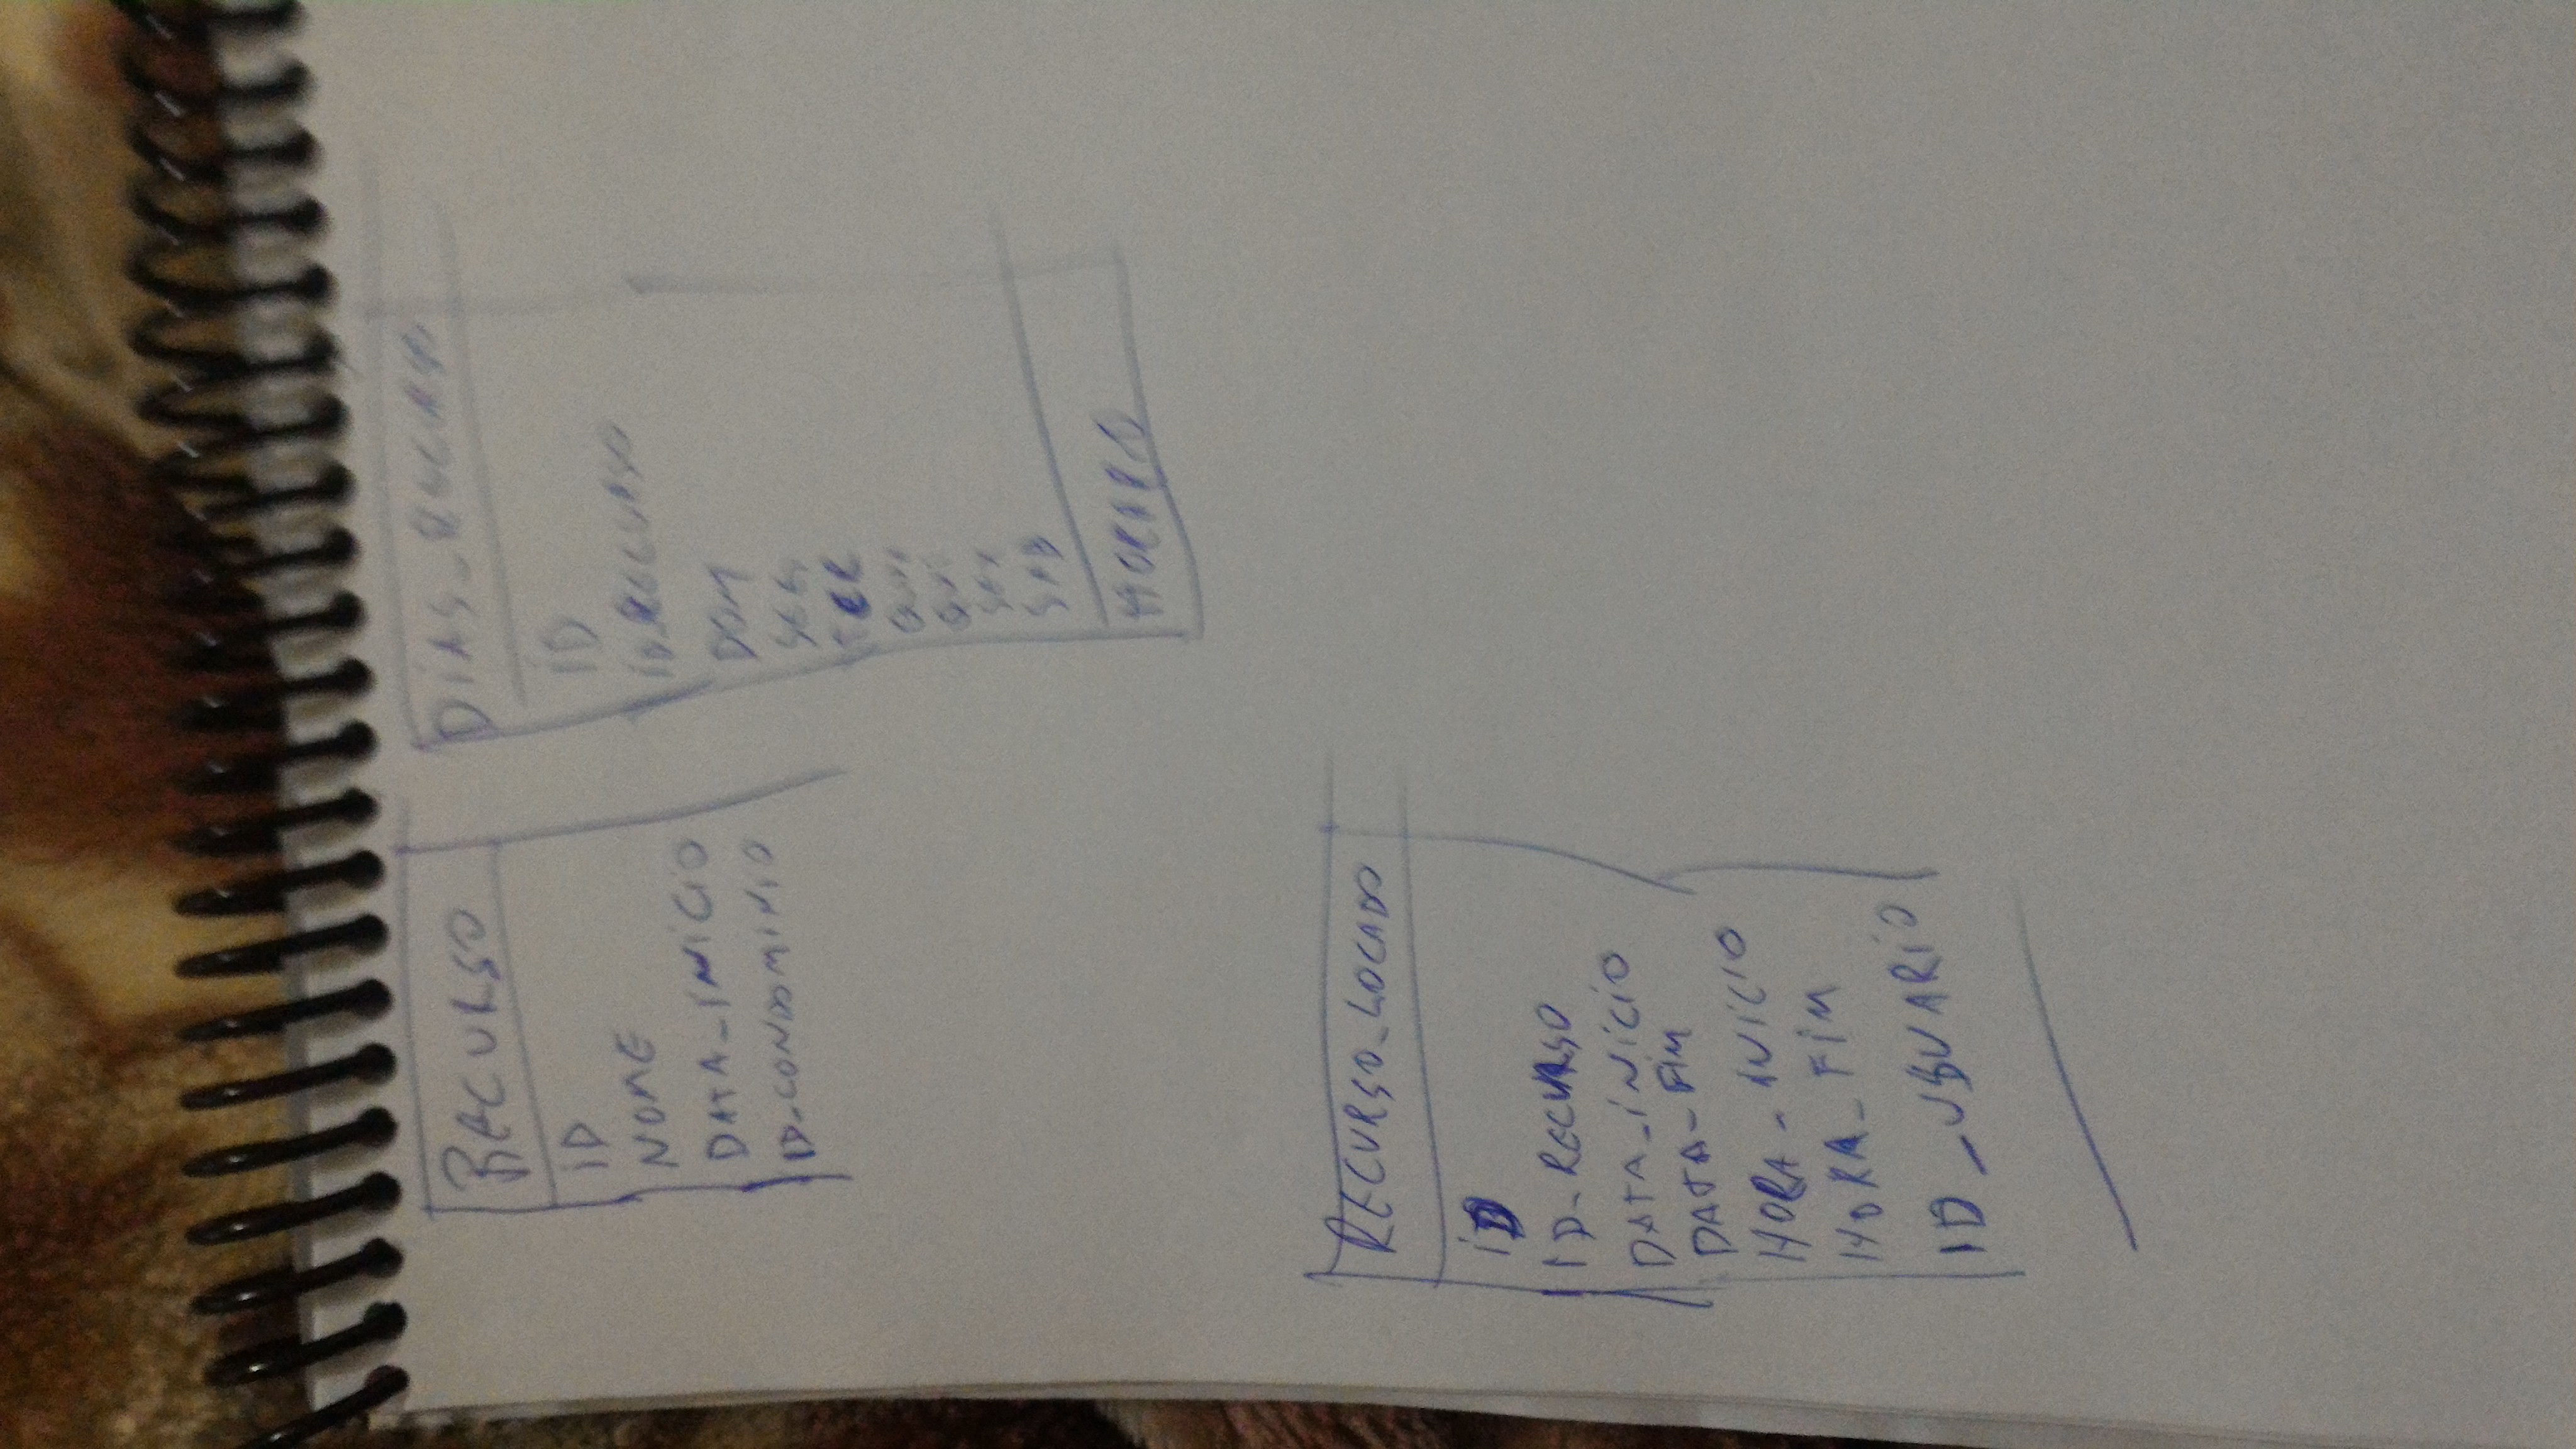 RECURSO
ID
NOME
DATA_INICIO
ID_CONDOMINIO
DIAS_RECURSO
ID
ID_RECURSO
DOM
SEG
TER
QUA
QUI
SEX
SAB
HORARIO
RECURSO_LOCADO
ID
ID_RECURSO
DATA_INICIO
DATA_FIM
HORA_INICIO
HORA_FIM
ID_USUARIO